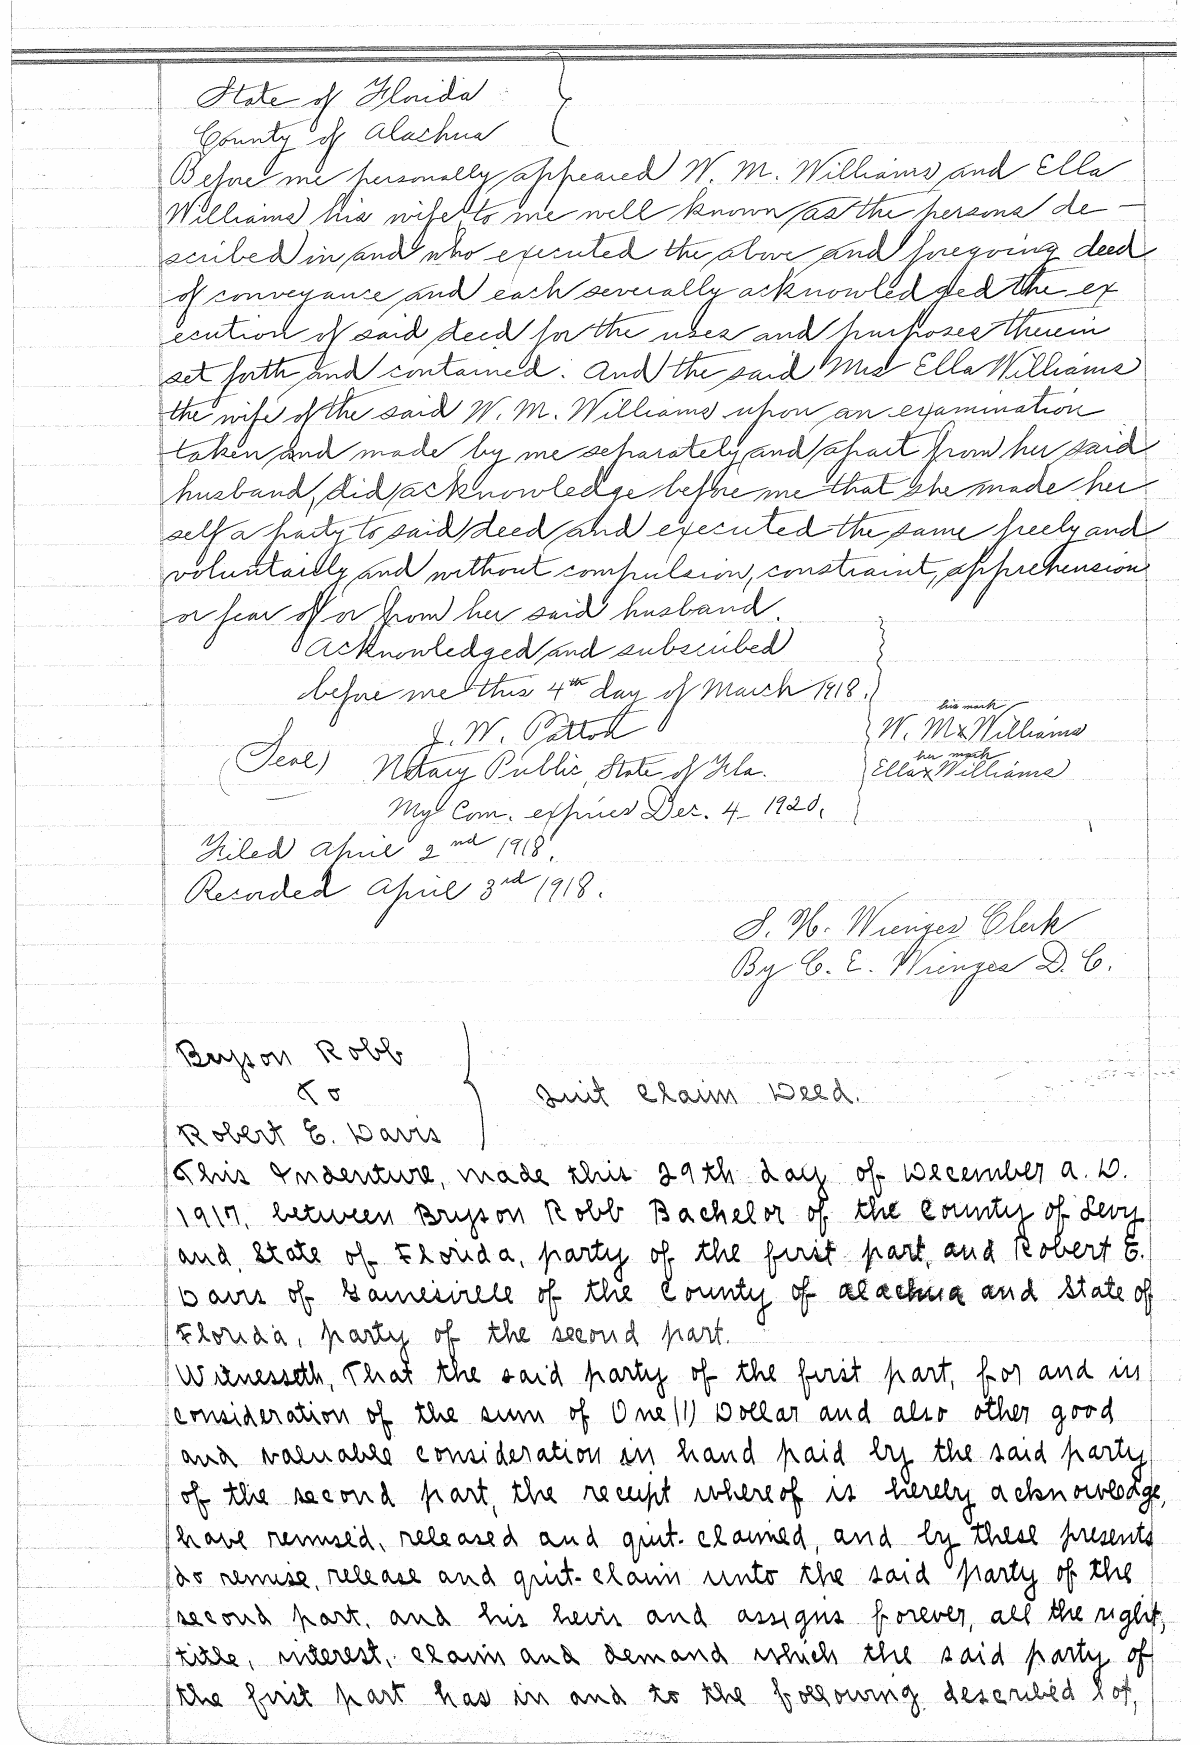 State of Florida
County of Alachua
Before me personally appeared W. M. Williams, and Ella
Williams his wife, to me well known as the persons de-
scribed in, and who executed the above and foregoing deed
of conveyance and each severally acknowledged the ex
ecution of said deed for the uses and purposes therein
set forth and contained. And the said Mrs Ella Williams
the wife of the said W. M. Williams upon an examination
taken and made by me separately and apart from her said
husband, did acknowledge before me that she made her
self a party to said deed and executed the same freely and
voluntarily, and without compulsion, constraint, apprehension
or fear of or from her said husband.
Acknowledged and subscribed
before me this 4th day of March 1918.
his mark
J. W. Patton W. M x Williams
her mark
(Seal) Notary Public, State of Fla. Ella x Williams
My Com. expires Dec. 4 - 1920.
Filed April 2nd 1918.
Recorded April 3rd 1918.
S. H. Wienges Clerk
By C. E. Wienges D. C.
Bryson Robb
To
Quit Claim Deed.
Robert E. Davis
This Indenture, made this 29th day of December A. D.
1917, between Bryson Robb Bachelor of the County of Levy
and, State of Florida, party of the first part, and Robert E.
Davis of Gainesville of the County of Alachua and State of
Florida, party of the second part.
Witnesseth, That the said party of the first part, for and in
consideration of the sum of One (1) Dollar and also other good
and valuable consideration in hand paid by the said party
of the second part, the receipt whereof is hereby acknowledge,
have remised, released and quit-claimed, and by these presents
do remise, release and quit-claim unto the said party of the
second part, and his heirs and assigns forever, all the right,
title, interest, claim and demand which the said party of
the first part has in and to the following described lot,